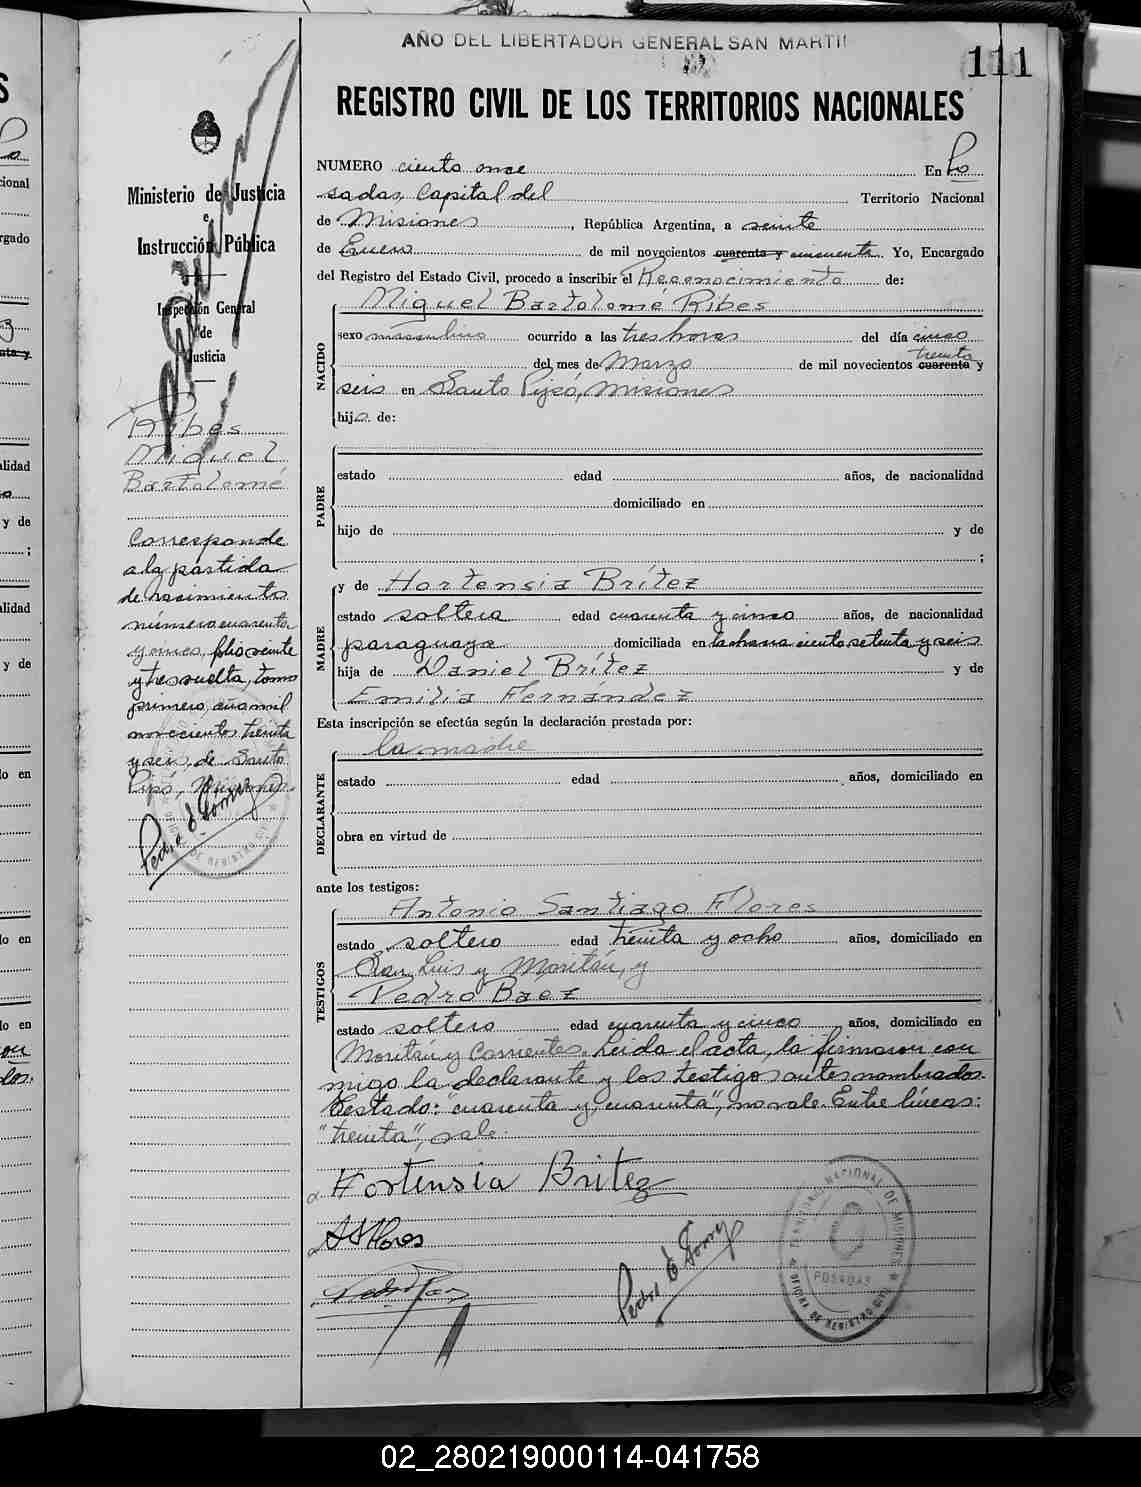 AÑO DEL LIBERTADOR GENERAL SAN MARTI
111
REGISTRO CIVIL DE LOS TERRITORIOS NACIONALES
Ministerio de Justicia
e
Instrucción Pública
Inspección General
de
Justicia
Ribes
Miguel
Bartolomé
Corresponde
a la partida
de nacimiento
número cuarenta
y once, folio veinte
y tres vuelta, tomo
primero, año mil
novecientos treinta
y seis, de Santo
Pipó, Misiones.
Pedro E
NUMERO ciento once En Po
sadas, Capital del Territorio Nacional
de Misiones, República Argentina, a veinte
de Enero de mil novecientos cuarenta y cincuenta. Yo, Encargado
del Registro del Estado Civil, procedo a inscribir el Reconocimiento de:
Miguel Bartolomé Ribes
NACIDO
sexo masculino ocurrido a las tres horas del día cinco
del mes de Marzo de mil novecientos cuarenta y treinta
seis en Santo Pipó, Misiones
hijo de:
PADRE
estado edad años, de nacionalidad
domiciliado en
hijo de y de
;
MADRE
y de Hortensia Brítez
estado soltera edad cuarenta y cinco años, de nacionalidad
paraguaya domiciliada en la chacra ciento setenta y seis
hija de Daniel Brítez y de
Emilia Fernández
Esta inscripción se efectúa según la declaración prestada por:
DECLARANTE
la madre
estado edad años, domiciliado en
obra en virtud de
ante los testigos:
TESTIGOS
Antonio Santiago Flores
estado soltero edad treinta y ocho años, domiciliado en
San Luis y Moritán, y
Pedro Baez
estado soltero edad cuarenta y cinco años, domiciliado en
Moritán y Corrientes. Leida el acta, la firmaron con
migo la declarante y los testigos antes nombrados.
Testado: "cuarenta y, cuarenta", no vale. Entre líneas:
"treinta", vale.
Hortensia Britez
A S Flores
Pedro
Pedro E
TERRITORIO NACIONAL DE MISIONES
POSADAS
OFICINA DE REGISTRO CIVIL
02_280219000114-041758